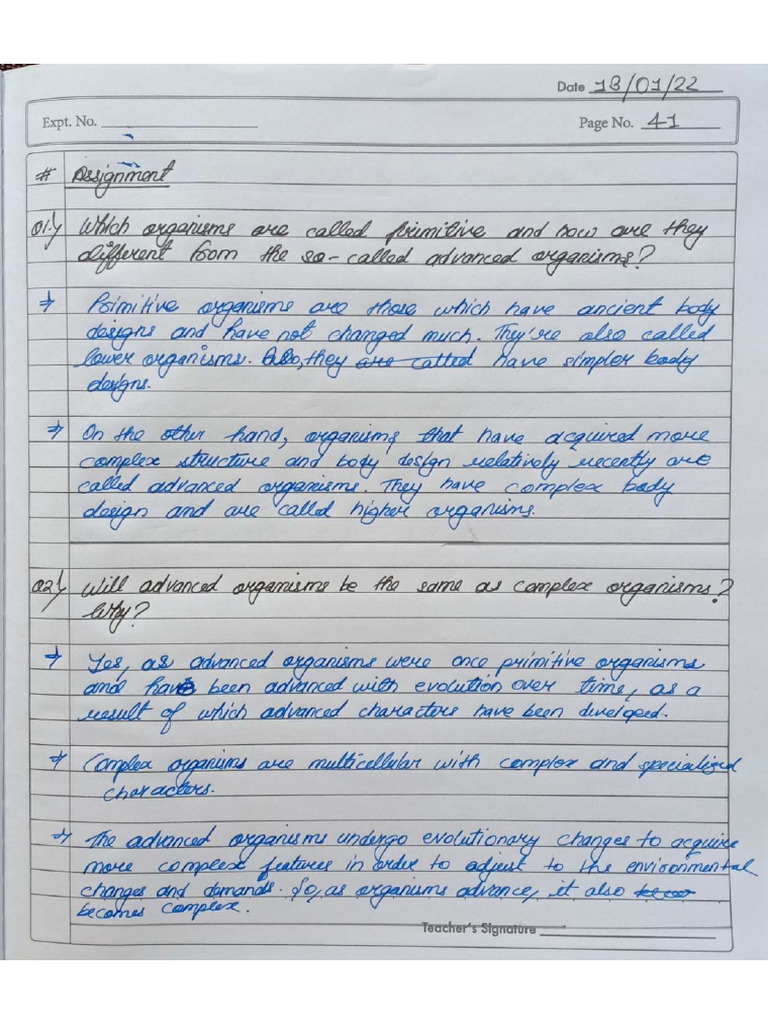 Date 18/01/22
Expt. No.
Page No. 41
# Assignment
Q1.) Which organisms are called primitive and how are they
different from the so-called advanced organisms?
→ Primitive organisms are those which have ancient body
designs and have not changed much. They're also called
lower organisms. Also, they are called have simpler body
designs.
→ On the other hand, organisms that have acquired more
complex structure and body design relatively recently are
called advanced organisms. They have complex body
design and are called higher organisms.
Q2.) Will advanced organisms be the same as complex organisms?
Why?
→ Yes, as advanced organisms were once primitive organisms
and have been advanced with evolution over time, as a
result of which advanced characters have been developed.
→ Complex organisms are multicellular with complex and specialized
characters.
→ The advanced organisms undergo evolutionary changes to acquire
more complex features in order to adjust to the environmental
changes and demands. So, as organisms advance, it also
becomes complex.
Teacher's Signature